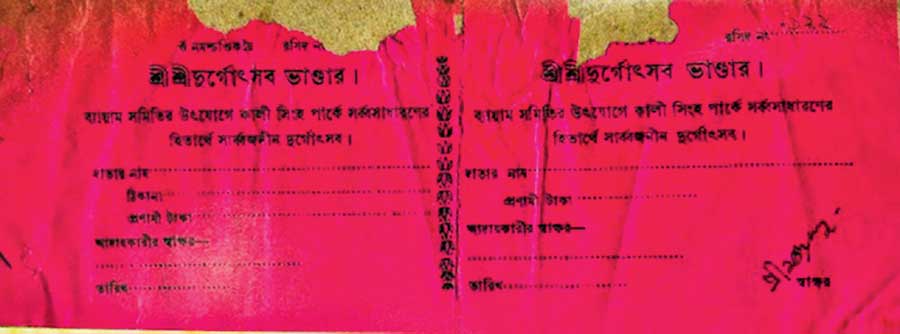 নমশ্চণ্ডিকায়ৈ রসিদ
শ্রীশ্রীদুর্গোৎসব ভাণ্ডার।
ব্যায়াম সমিতির উৎযোগে কালী সিংহ পার্কে সর্ব্বসাধারণের
হিতার্থে সার্ব্বজনীন দুর্গোৎসব।
দাতার নাম
ঠিকানা
প্রণামী টাকা
আদায়কারীর স্বাক্ষর—
তারিখ
রসিদ নং
শ্রীশ্রীদুর্গোৎসব ভাণ্ডার।
ব্যায়াম সমিতির উৎযোগে কালী সিংহ পার্কে সর্ব্বসাধারণের
হিতার্থে সার্ব্বজনীন দুর্গোৎসব।
দাতার নাম
প্রণামী টাকা
আদায়কারীর স্বাক্ষর—
তারিখ
স্বাক্ষর